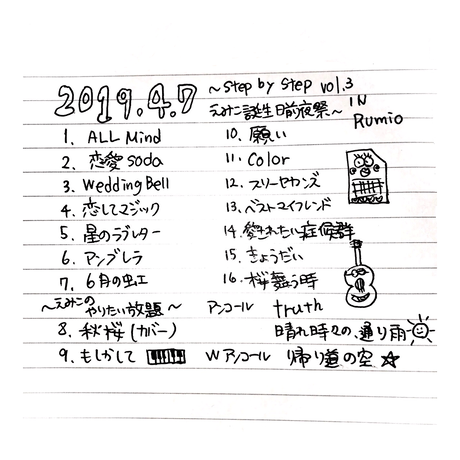 2019.4.7 ~Step by Step vol.3
えみこ誕生日前夜祭~ IN Rumio
1. ALL Mind
2. 恋愛soda
3. Wedding Bell
4. 恋してマジック
5. 星のラブレター
6. アンブレラ
7. 6月の虹
~えみこのやりたい放題~
8. 秋桜(カバー)
9. もしかして
10. 願い
11. Color
12. スリーセカンズ
13. ベストマイフレンド
14. 愛されたい症候群
15. きょうだい
16. 桜舞う時
アンコール truth
晴れ時々の、通り雨
Wアンコール 帰り道の空☆